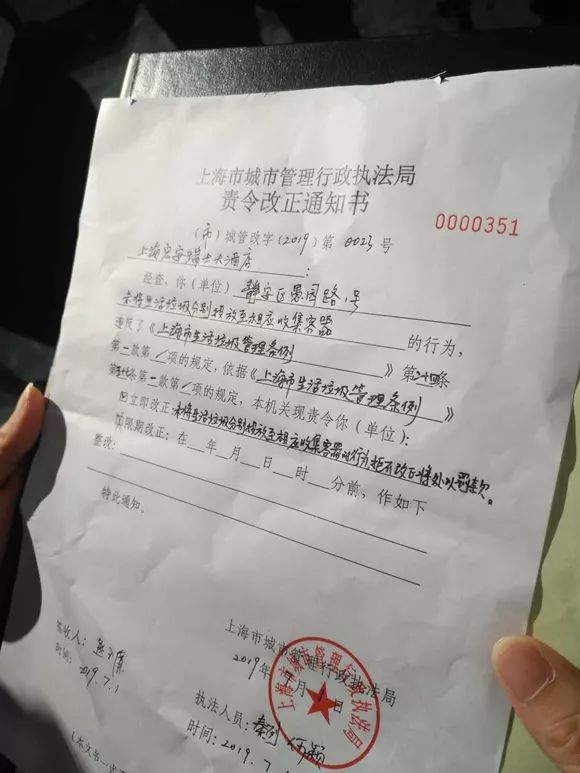 上海市城市管理行政执法局
责令改正通知书
0000351
(市)城管改字(2019)第0023号
上海宏安瑞士大酒店:
经查,你(单位)静安区愚园路1号
未将生活垃圾分别投放至相应收集容器的行为,
违反了《上海市生活垃圾管理条例》第二十四条
第二款第/项的规定,依据《上海市生活垃圾管理条例》
条第二款第/项的规定,本机关现责令你(单位):
立即改正:未将生活垃圾分别投放至相应收集容器的行为拒不改正将处以罚款。
限期改正:在 年 月 日 时 分前,作如下
整改:
特此通知。
上海市城市管理行政执法局
2019年7月1日
上海市城市管理行政执法局
签收人:
时间:2019.7.1
执法人员:
时间:2019.7.
(本文书一式